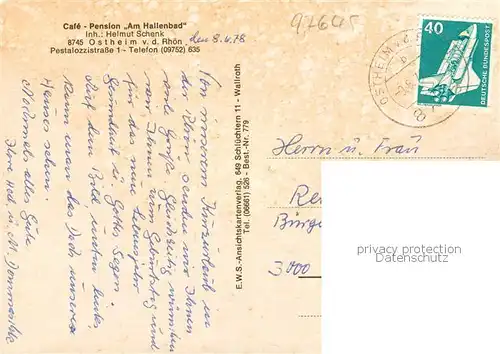 Café - Pension "Am Hallenbad"
Inh.: Helmut Schenk
8745 Ostheim v. d. Rhön
Pestalozzistraße 1 - Telefon (09752) 635
den 8.4.78
Von unserem Kurzurlaub in
der Rhön senden wir Ihnen
viele Grüße. Gleichzeitig wünschen
wir Ihnen zum Geburtstag und
für das neue Lebensjahr
Gesundheit u. Gottes Segen.
Auf dem Bild unten links
kann man das Dach unseres
Hauses sehen.
Nochmals alles Gute
Ihre u. M.
E.W.S.-Ansichtskartenverlag, 649 Schlüchtern 11 - Wallroth
Tel. (06661) 526 - Best.-Nr. 779
97645
OSTHEIM v. d.
40
DEUTSCHE BUNDESPOST
Herrn u. Frau
Re
Bürge
3000
privacy protection
Datenschutz